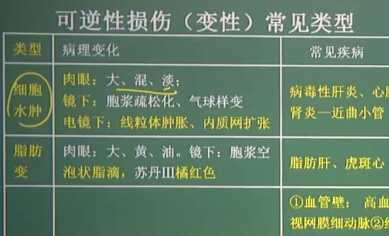 可逆性损伤（变性）常见类型
类型 病理变化 常见疾病
细胞水肿
肉眼：大、混、淡；
镜下：胞浆疏松化、气球样变
电镜下：线粒体肿胀、内质网扩张
病毒性肝炎、心
肾炎—近曲小管
脂肪变
肉眼：大、黄、油。镜下：胞浆空
泡状脂滴，苏丹Ⅲ橘红色
脂肪肝、虎斑心
①血管壁：高血
视网膜细动脉②